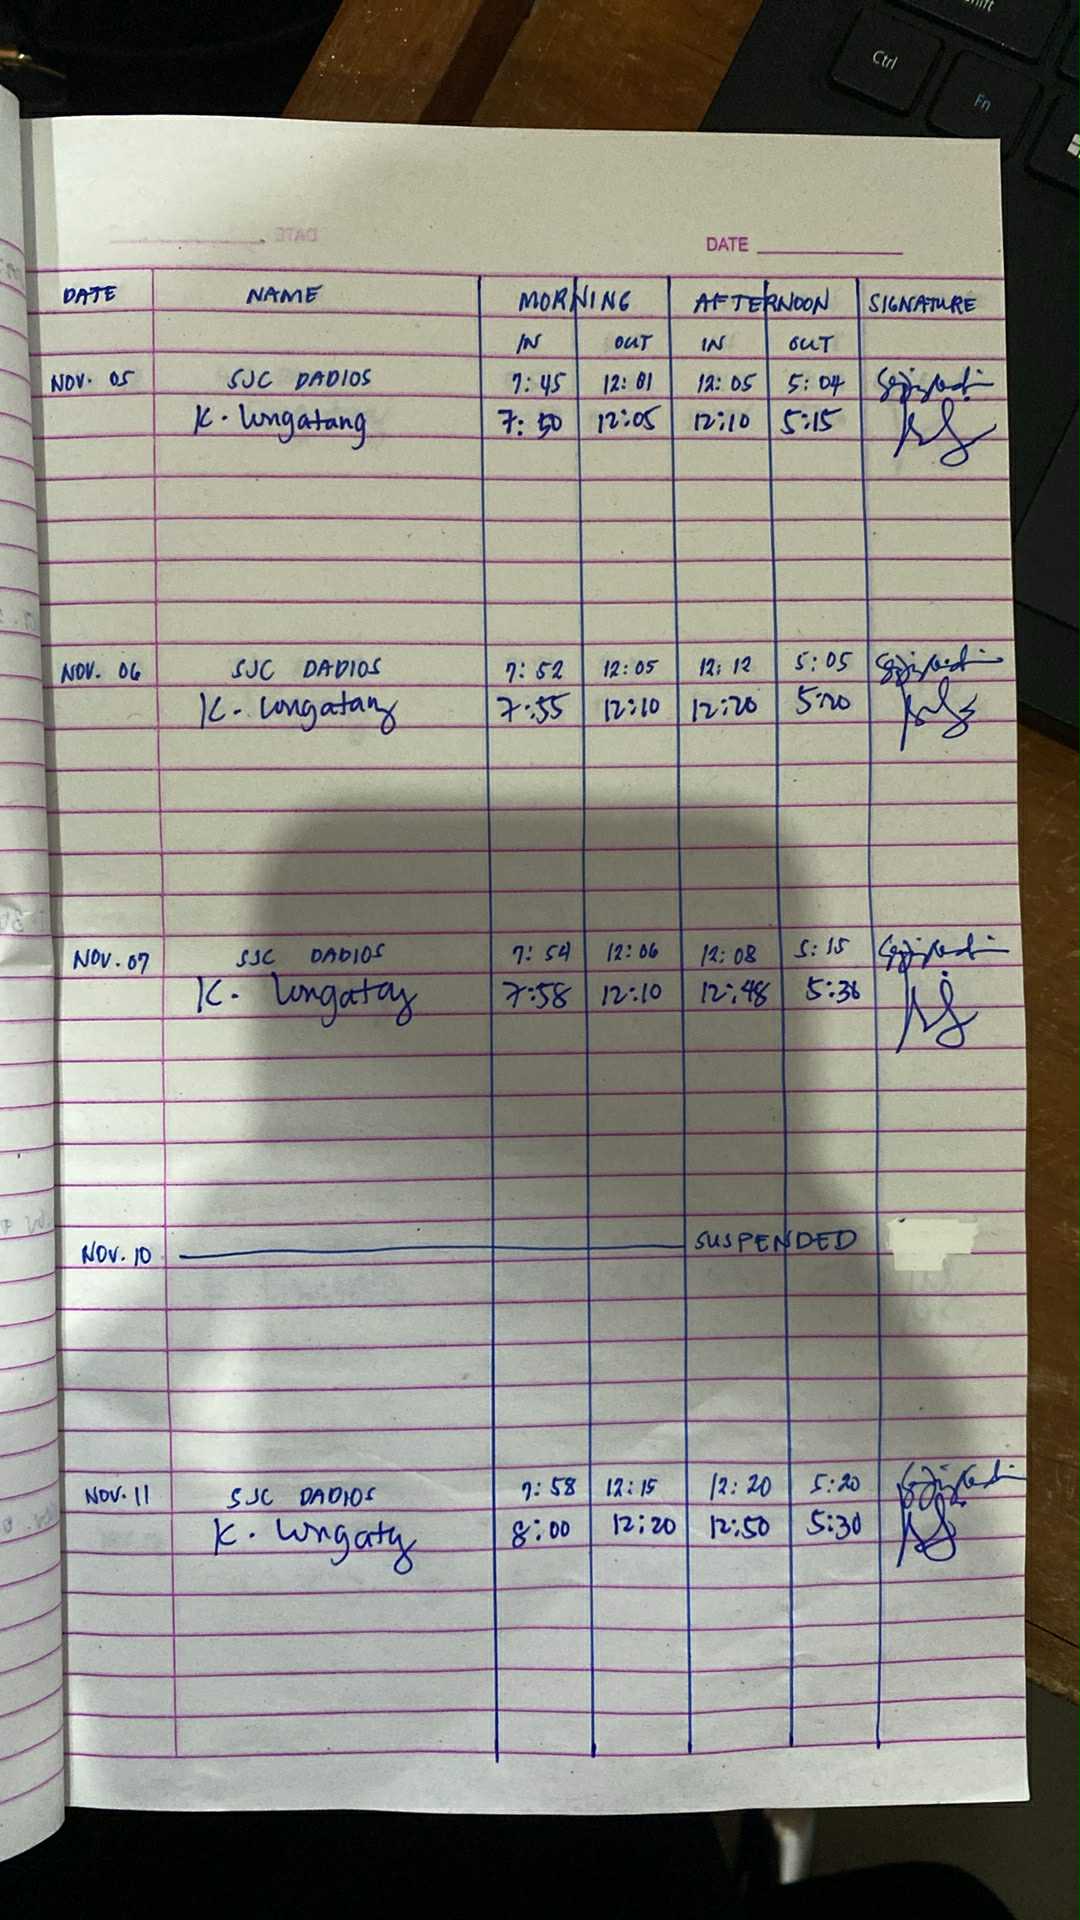 shift
Ctrl
Fn
DATE
DATE
DATE NAME MORNING AFTERNOON SIGNATURE
IN OUT IN OUT
NOV. 05 SJC DADIOS 7:45 12:01 12:05 5:04
K. Longatang 7:50 12:05 12:10 5:15
NOV. 06 SJC DADIOS 7:52 12:05 12:12 5:05
K. Longatang 7:55 12:10 12:20 5:20
NOV. 07 SJC DADIOS 7:54 12:06 12:08 5:15
K. 7:58 12:10 12:48 5:36
NOV. 10 SUSPENDED
NOV. 11 SJC DADIOS 7:58 12:15 12:20 5:20
K. 8:00 12:20 12:50 5:30